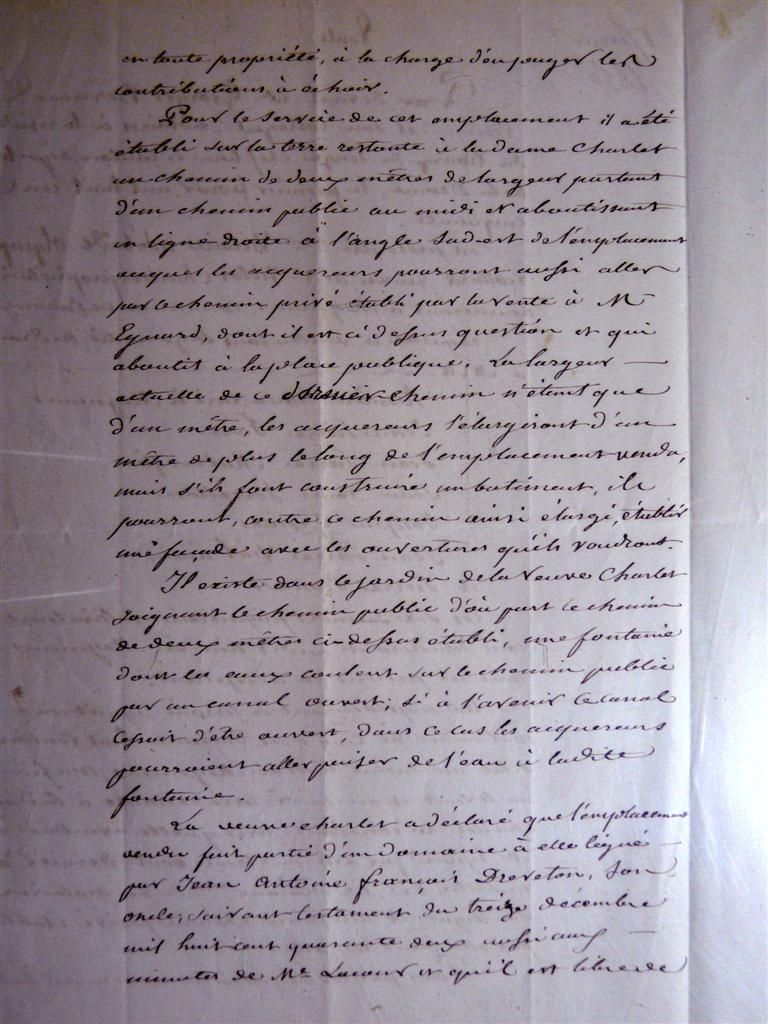 en toute propriété, à la charge d'en payer les
contributions à échoir.
Pour le service de cet emplacement il a été
établi sur la terre restante à la dame Charlet
un chemin de deux mètres de largeur partant
d'un chemin public au midi et aboutissant
en ligne droite à l'angle sud-est de l'emplacement
auquel les acquereurs pourront aussi aller
par le chemin privé établi par la vente à Mr
Eynard, dont il est ci dessus question et qui
aboutit à la place publique. La largeur
actuelle de ce dernier chemin n'étant que
d'un mètre, les acquereurs l'élargiront d'un
mètre de plus le long de l'emplacement vendu,
mais s'ils font construire un batiment, ils
pourront, contre ce chemin ainsi élargi, établir
une façade avec les ouvertures qu'ils voudront.
Il existe dans le jardin de la veuve Charlet
joignant le chemin public d'où part le chemin
de deux mètres ci-dessus établi, une fontaine
dont les eaux coulent sur le chemin public
par un canal ouvert; si à l'avenir le canal
cessait d'être ouvert, dans ce cas les acquereurs
pourraient aller puiser de l'eau à ladite
fontaine.
La veuve charlet a déclaré que l'emplacement
vendu fait partie d'un domaine à elle légué
par Jean Antoine françois Dreveton, son
oncle, suivant testament du treize décembre
mil huit cent quarante deux aussi aux
minutes de Me et qu'il est libre de